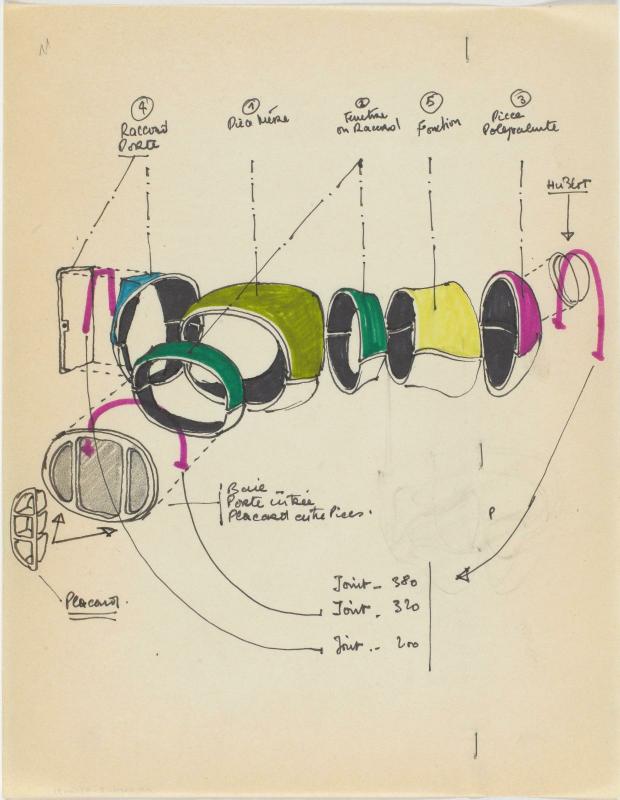 4
Raccord
Porte
1
Pièce Mère
2
Fenêtre
ou Raccord
5
Fonction
3
Pièce
Polyvalente
Hublot
Baie
Porte entrée
Placard entre Pièces.
P
Placard.
Joint - 380
Joint. 320
Joint .- 200